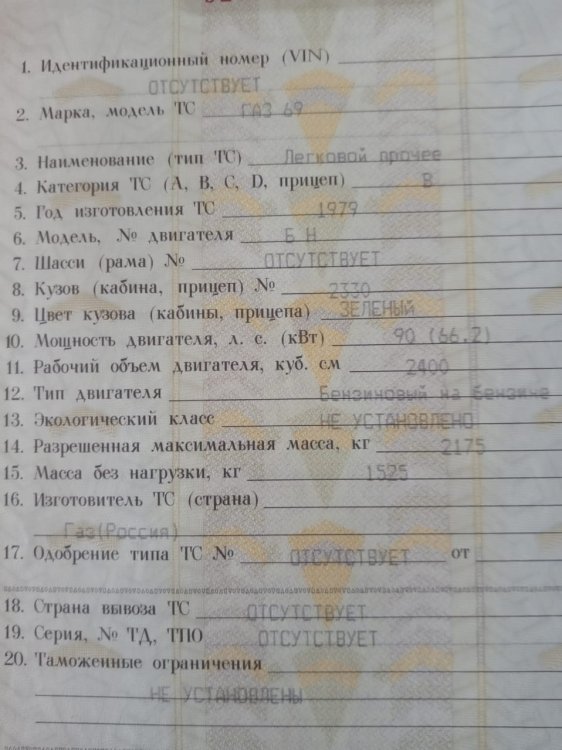 1. Идентификационный номер (VIN)
ОТСУТСТВУЕТ
2. Марка, модель ТС ГАЗ 69
3. Наименование (тип ТС) Легковой прочее
4. Категория ТС (А, В, С, D, прицеп) В
5. Год изготовления ТС 1979
6. Модель, № двигателя Б Н
7. Шасси (рама) № ОТСУТСТВУЕТ
8. Кузов (кабина, прицеп) № 2330
9. Цвет кузова (кабины, прицепа) ЗЕЛЕНЫЙ
10. Мощность двигателя, л. с. (кВт) 90 (66.2)
11. Рабочий объем двигателя, куб. см 2400
12. Тип двигателя Бензиновый на бензине
13. Экологический класс НЕ УСТАНОВЛЕНО
14. Разрешенная максимальная масса, кг 2175
15. Масса без нагрузки, кг 1525
16. Изготовитель ТС (страна)
Газ(Россия)
17. Одобрение типа ТС № ОТСУТСТВУЕТ от
18. Страна вывоза ТС ОТСУТСТВУЕТ
19. Серия, № ТД, ТПО ОТСУТСТВУЕТ
20. Таможенные ограничения
НЕ УСТАНОВЛЕНЫ